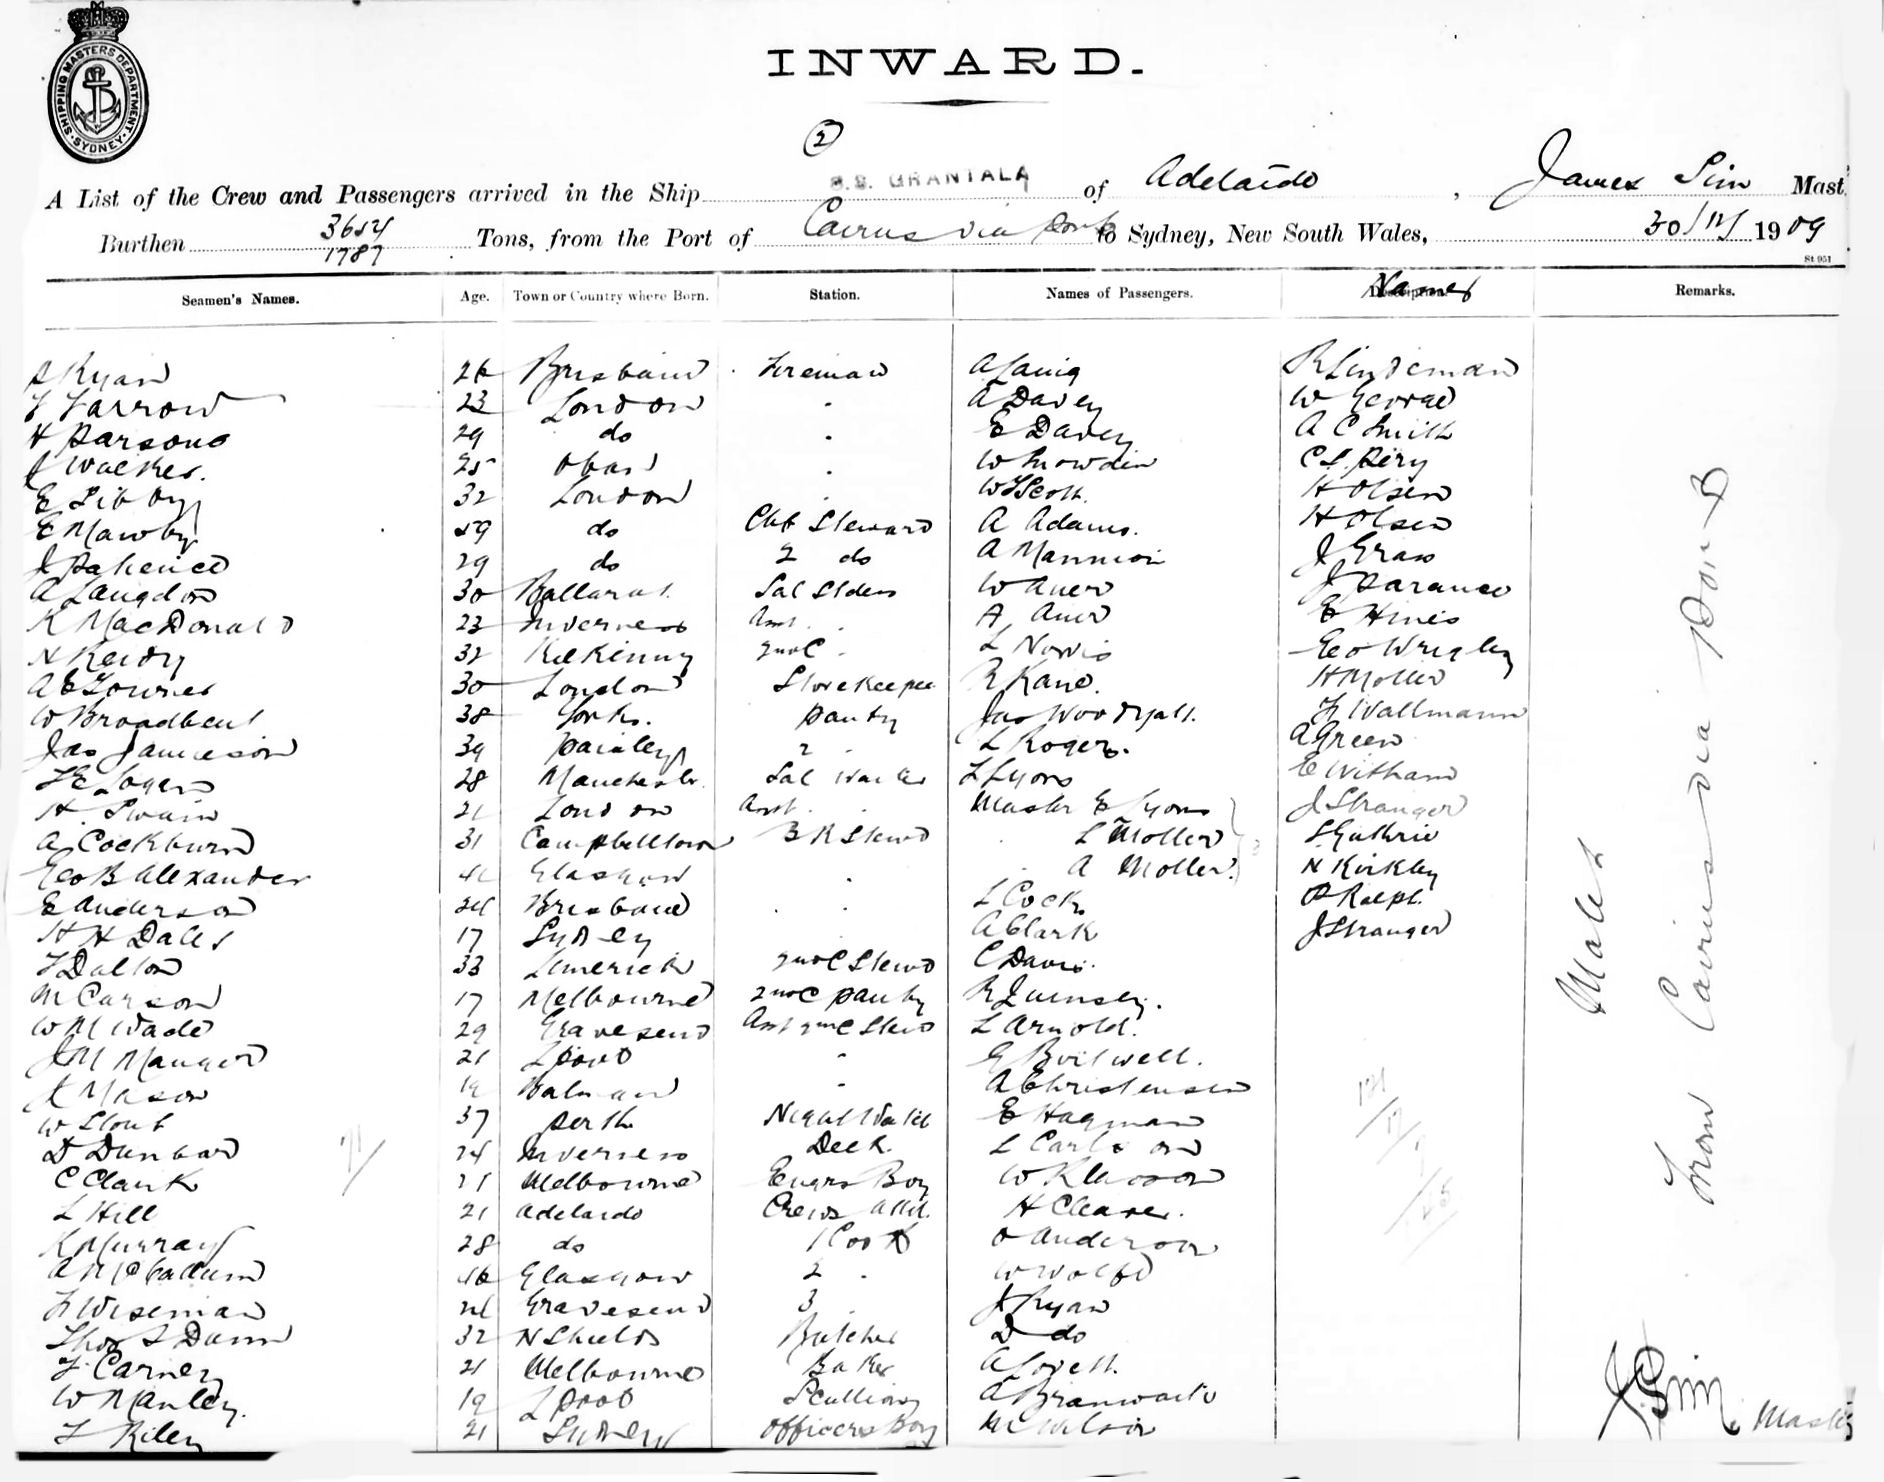 SHIPPING MASTERS DEPARTMENT. SYDNEY
INWARD.
2
A List of the Crew and Passengers arrived in the Ship S.S. GRANTALA of Adelaide, James Sim Mast.
Burthen 3654 / 1787 Tons, from the Port of Cairns via Ports to Sydney, New South Wales, 30/12/1909
St 951
Seamen's Names. Age. Town or Country where Born. Station. Names of Passengers. Names Remarks.
Ryan 26 Brisbane Fireman A Laing R Lindeman
F Farrow 23 London " A Davey W
H Parsons 29 do " E Davey A C Smith
J Walker. 25 Oban " W Snowden C L. Pery
E Libby 32 London " W F Scott. H Olsen
E Mawby 59 do Chf Steward A Adams. H Olsen
J Patience 29 do 2 do A Mannion J Grass
A Langdon 30 Ballarat W Auer J
K MacDonald 23 Inverness Asst. " A Auer E Hines
N Reidy 32 Kilkenny 2nd C " L Norris Geo Wrigley
A E Townes 30 London Storekeeper R Kane. H Moller
W Broadbent 38 Yorks. Pantry Jas F Wallmann
Jas Jamieson 39 Paisley 2 " L Rogers. A Green
F E Logan 28 Manchester. Sal Waiter L Lyons E Witham
H. Swain 21 London Asst. " Master E Lyons J Stranger
A Cockburn 31 Campbelltown B R Stewd L Moller S Guthrie
Geo B Alexander Glasgow " A Moller. N Kirkley
E Anderson 24 Brisbane " L Cock P Ralph.
H H Dales 17 Sydney A Clark J Stranger
F Dalton 33 Limerick 2nd C Stewd C Davis.
M Carson 17 Melbourne 2nd C Pantry
W M Wade 29 Gravesend Asst 2nd C Stewd L Arnold.
J M Manger 21 L Pool " G
J Mason 19 Balmain " A Christensen
W Stout 37 Perth Night Watch E Hagman
D Dunbar 24 Inverness Deck. L Carlson
C Clark 21 Melbourne Engrs Boy W Klasson
L Hill 21 Adelaide Crews Attd. H Cleaver.
K Murray 28 do 1 Cook O Anderson
A McFadden 46 Glasgow 2 " W Wolfe
F Wiseman 24 Gravesend 3 " J Ryan
Thos S Dann 32 N Shields Butcher D do
F Carney 21 Melbourne Baker A Lovett.
W Manley. 19 L Pool Scullion A Branwaite
F Riley 21 Sydney Officers Boy M Wilson
Males
From Cairns via Ports
J Sim. Master